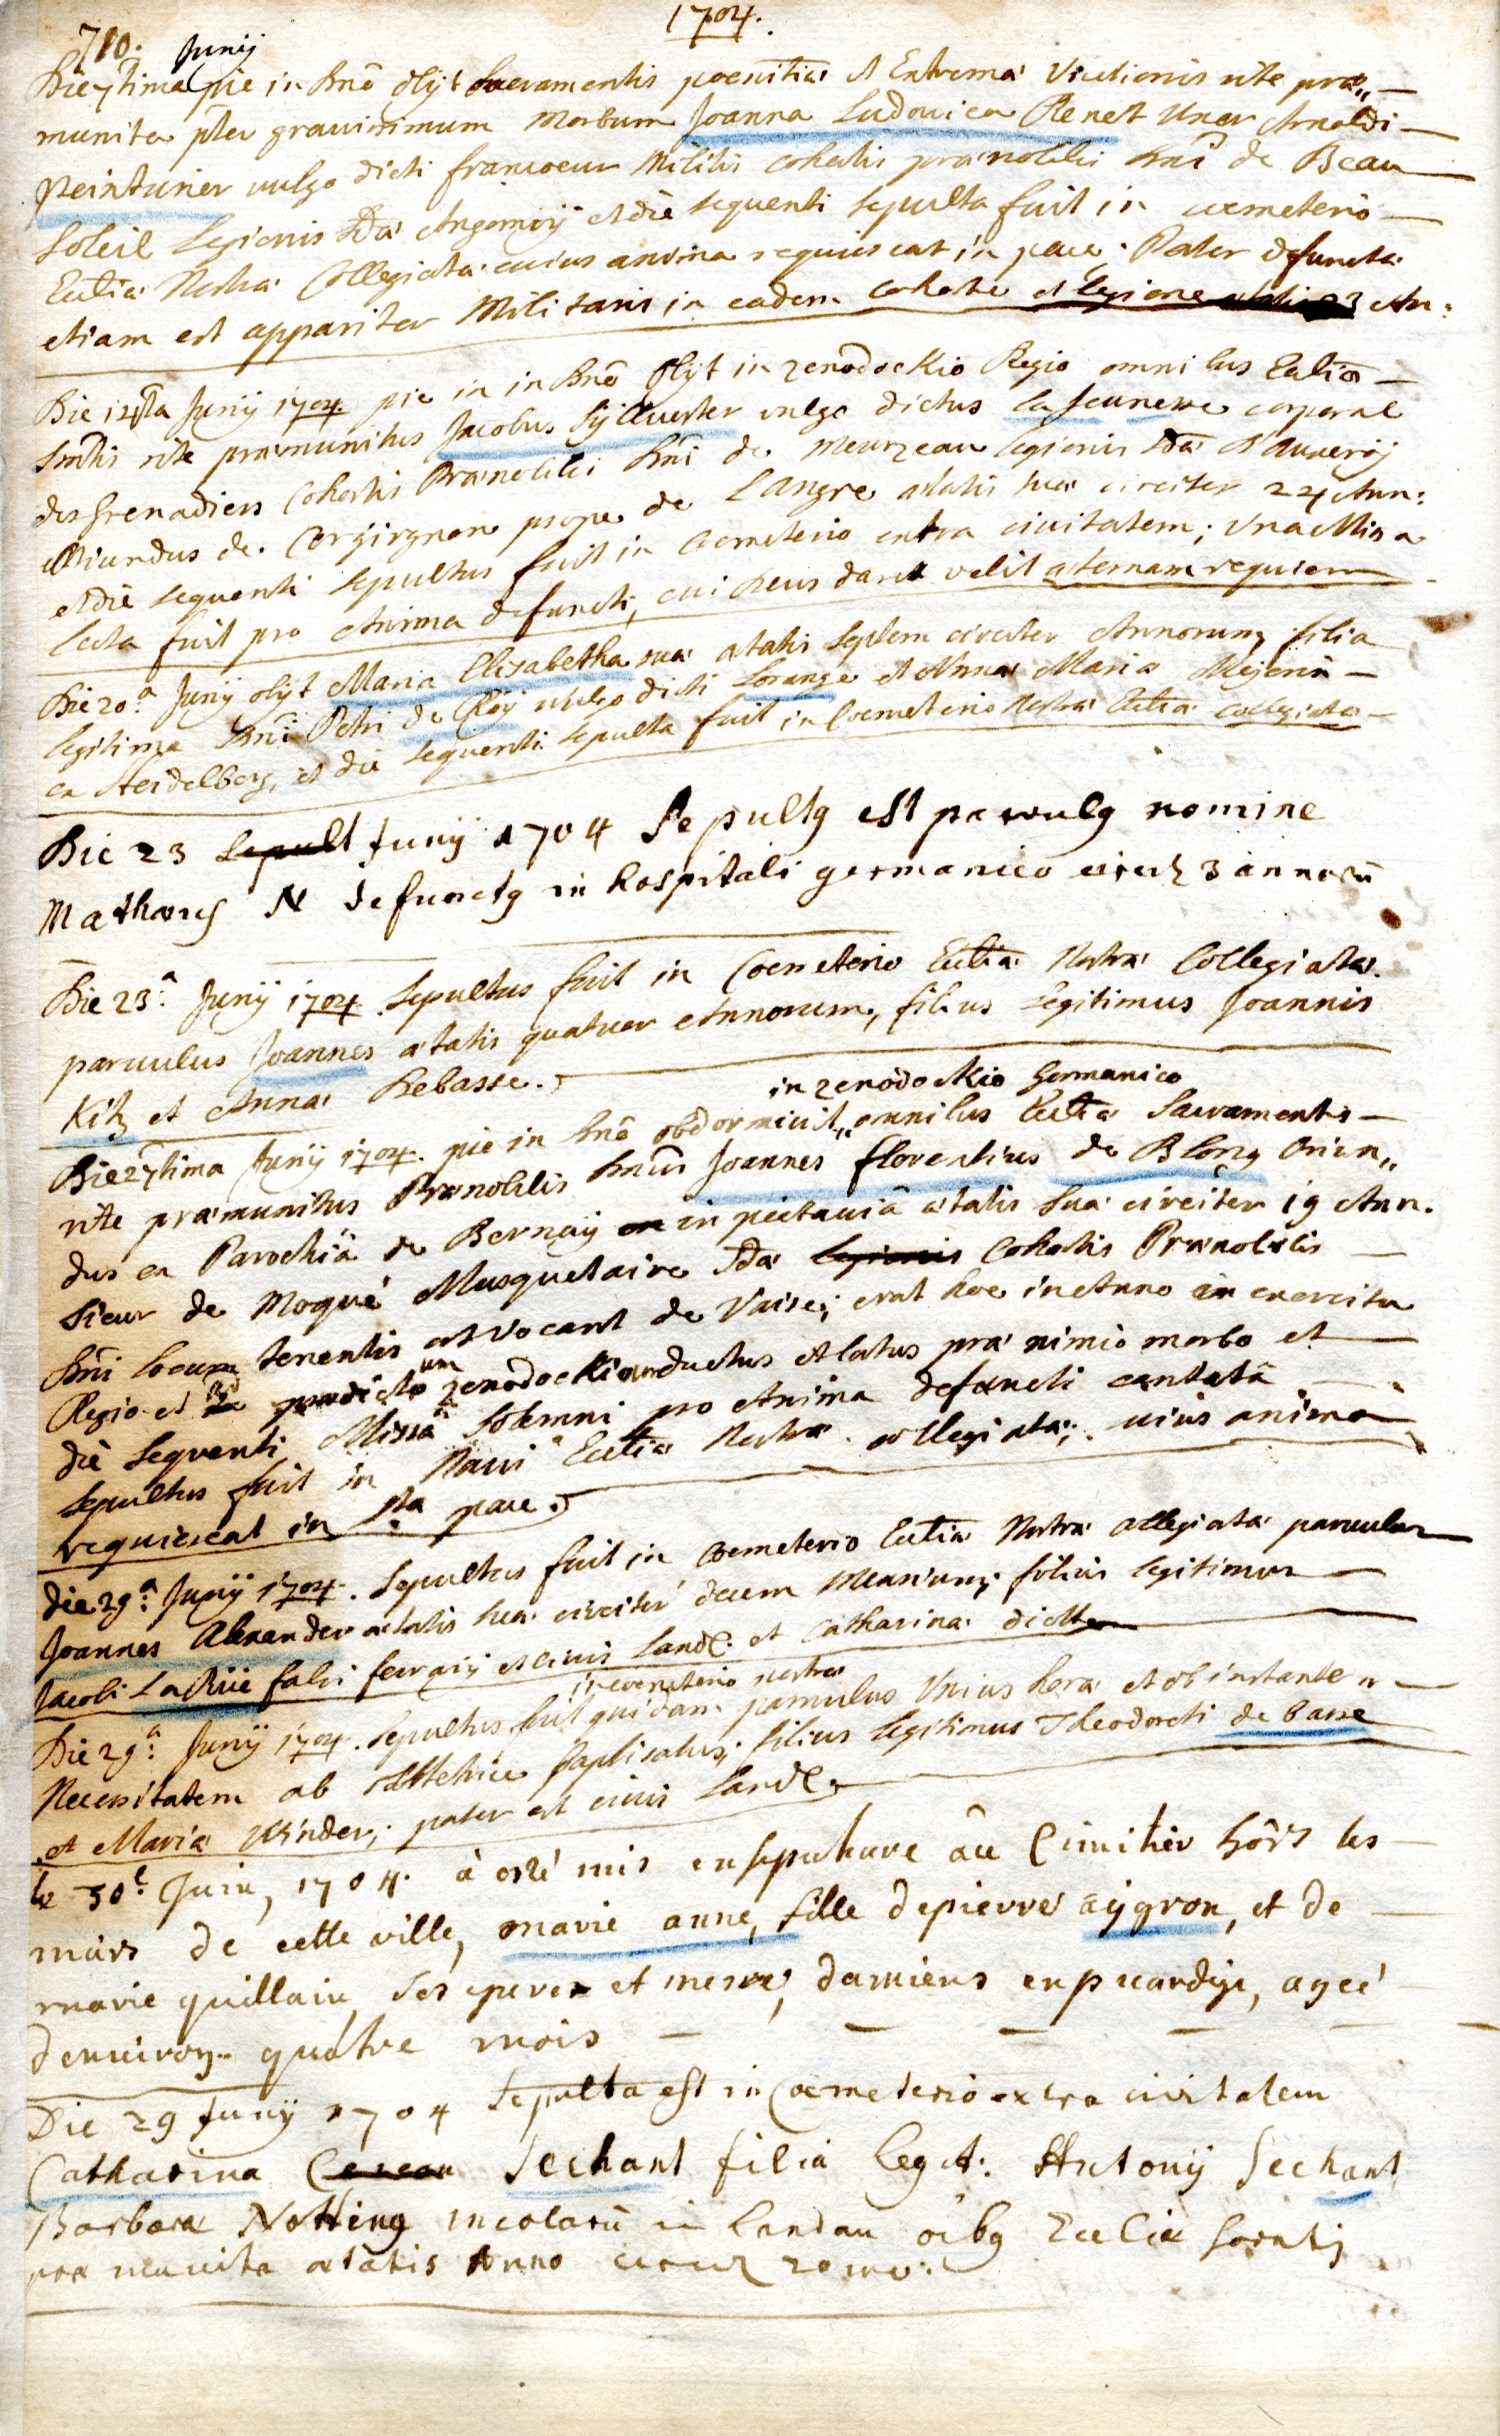 710.
1704.
Junij
Die 7tima pie in Dnō obijt Sacramentis poenitiæ et Extremæ Unctionis rite præ„
munita ptēr gravissimum morbum Joanna Ludovica Renet Uxor Arnoldi
Peinturier vulgo dicti francoeur Militis cohortis prænobilis Dnī de Beau
Soleil Legionis Dtæ Angomoij et diē sequenti sepulta fuit in coemeterio
Ecclīæ Nostræ Collegiatæ cuius anima requiescat in pace; Pater defunctæ
etiam est apparitor Militaris in eadem cohorte et legione ætatis 23 An:
Die 12ma Junij 1704 pie in in Dnō obijt in xenodochio Regio omnibus Ecclīæ
Smtīs rite præmunitus Jacobus Sylvester vulgo dictus la Jeunesse corporal
des Grenadiers Cohortis Prænobilis Dnī de Meurzeau legionis Dtæ d'Auxeroij
Oriundus de Corgirgnon prope de Langre ætatis suæ circiter 24 Ann:
et diē sequenti sepultus fuit in Coemeterio extra civitatem; una Missa
lecta fuit pro Anima defuncti, cui Deus dare velit æternam requiem
Die 20.a Junij obijt Maria Elisabetha suæ ætatis septem circiter Annorum filia
legitima Dnī Petri de Roy vulgo dicti Lorange et Annæ Mariæ Mejerin
ex Heidelberg, et diē sequenti sepulta fuit in Coemeterio Nostræ Ecclīæ collegiatæ
Die 23 Sepult Junij 1704 Sepultg est parvulg nomine
Mathæus N defunctg in hospitali germanico circit 3 annorū
Die 23.a Junij 1704 Sepultus fuit in Coemeterio Ecclīæ Nostræ Collegiatæ
parvulus Joannes ætatis quatuor Annorum, filius legitimus Joannis
Kitz et Annæ Debasse.
in xenodochio Germanico
Die 27tima Junij 1704 pie in Dnō obdormivit„ omnibus Ecclīæ Sacramentis
rite præmunitus Prænobilis Dnūs Joannes florentius de Blong Oriun„
dus ex Parochiâ de Bernaij in pictaviâ ætatis suæ circiter 19 Ann.
Sieur de Moqué Musquetaire Dtæ Legionis Cohortis Prænobilis
Dnī locum tenentis ut vocant de Vaise; erat hoc in Anno in exercitu
Regio et ad prædictum xenodochium ductus et latus præ nimio morbo et
diē sequenti Missâ Solemni pro Anima defuncti cantatâ
sepultus fuit in Navi Ecclīæ Nostræ collegiatæ; cuius anima
requiescat in sta pace.
Die 29.a Junij 1704. Sepultus fuit in Coemeterio Ecclīæ Nostræ collegiatæ parvulus
Joannes Alexander ætatis suæ circiter decem Mensium, filius legitimus
Jacobi La Rüe fabri ferrarij et civis Land: et Catharinæ dicter
in coemeterio nostro
Die 29.a Junij 1704. Sepultus fuit quidam parvulus Unius horæ et ob instantem
Necessitatem ab obstetrice baptisatus, filius legitimus Theodoreti de basse
et Mariæ Kinder; pater est civis Land:
le 30.e Juin, 1704. à esté mis en sepulture aû Cimitier hôrs les
mûrs de cette ville, marie anne, fille de pierre aÿgron, et de
marie quillain ses pere et mere, damiens en picardije, ageé
denuiron quatre mois
Die 29 Junij 1704 Sepulta est in Coemeterio extra civitatem
Catharina Sechant filia legit: Antonij Sechant
Barbara Notting incolarū in Landau oībg Ecclīæ Sacrtis
præmunita ætatis Anno circit 20mo.